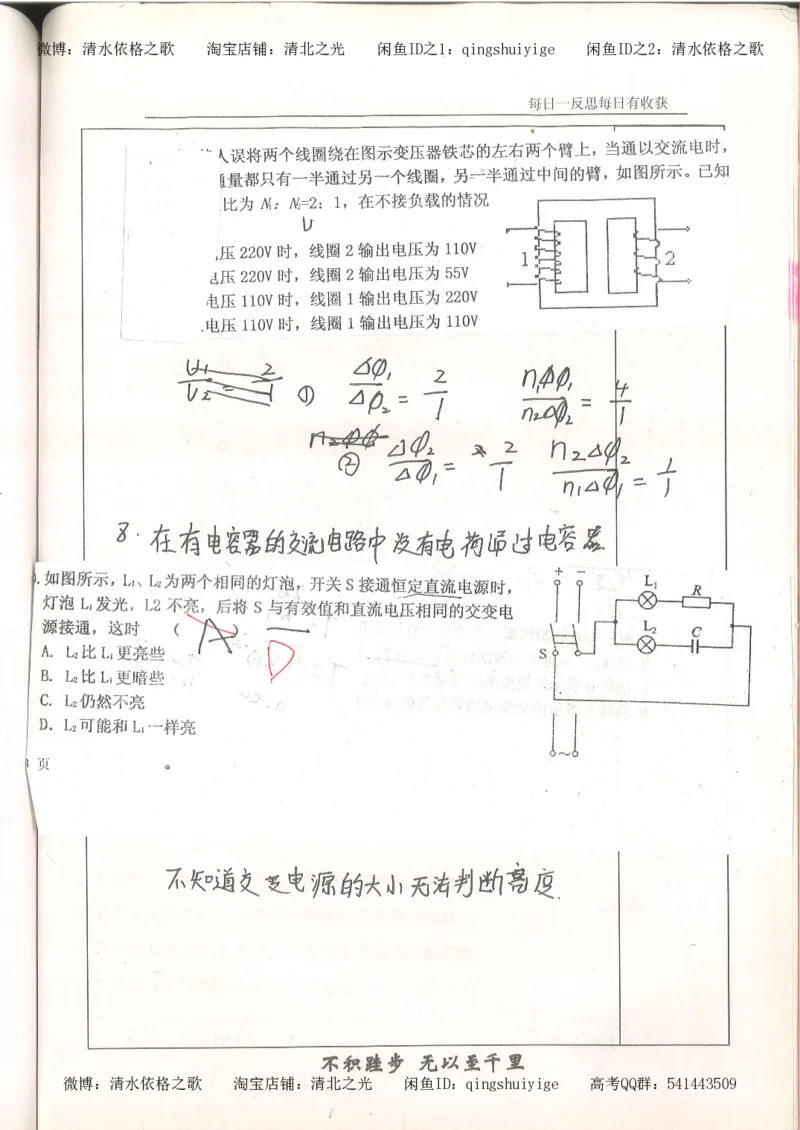 微博：清水依格之歌 淘宝店铺：清北之光 闲鱼ID之1：qingshuiyige 闲鱼ID之2：清水依格之歌
每日一反思每日有收获
人误将两个线圈绕在图示变压器铁芯的左右两个臂上，当通以交流电时，
通量都只有一半通过另一个线圈，另一半通过中间的臂，如图所示。已知
比为 N₁：N₂=2：1，在不接负载的情况
U
压 220V 时，线圈 2 输出电压为 110V
电压 220V 时，线圈 2 输出电压为 55V
电压 110V 时，线圈 1 输出电压为 220V
电压 110V 时，线圈 1 输出电压为 110V
1 2
U₁/U₂ = 2/1 ① ΔΦ₁/ΔΦ₂ = 2/1 n₁ΔΦ₁/n₂ΔΦ₂ = 4/1
② ΔΦ₂/ΔΦ₁ = 2/1 n₂ΔΦ₂/n₁ΔΦ₁ = 1/1
8. 在有电容器的交流电路中没有电荷通过电容器
.如图所示，L₁、L₂为两个相同的灯泡，开关 S 接通恒定直流电源时，
灯泡 L₁发光，L2 不亮，后将 S 与有效值和直流电压相同的交变电
源接通，这时 （ A ）
D
A. L₂比 L₁更亮些
B. L₂比 L₁更暗些
C. L₂仍然不亮
D. L₂可能和 L₁一样亮
+ −
L₁ R
L₂ C
S
~
页
不知道交变电源的大小无法判断亮度.
不积跬步 无以至千里
微博：清水依格之歌 淘宝店铺：清北之光 闲鱼ID：qingshuiyige 高考QQ群：541443509